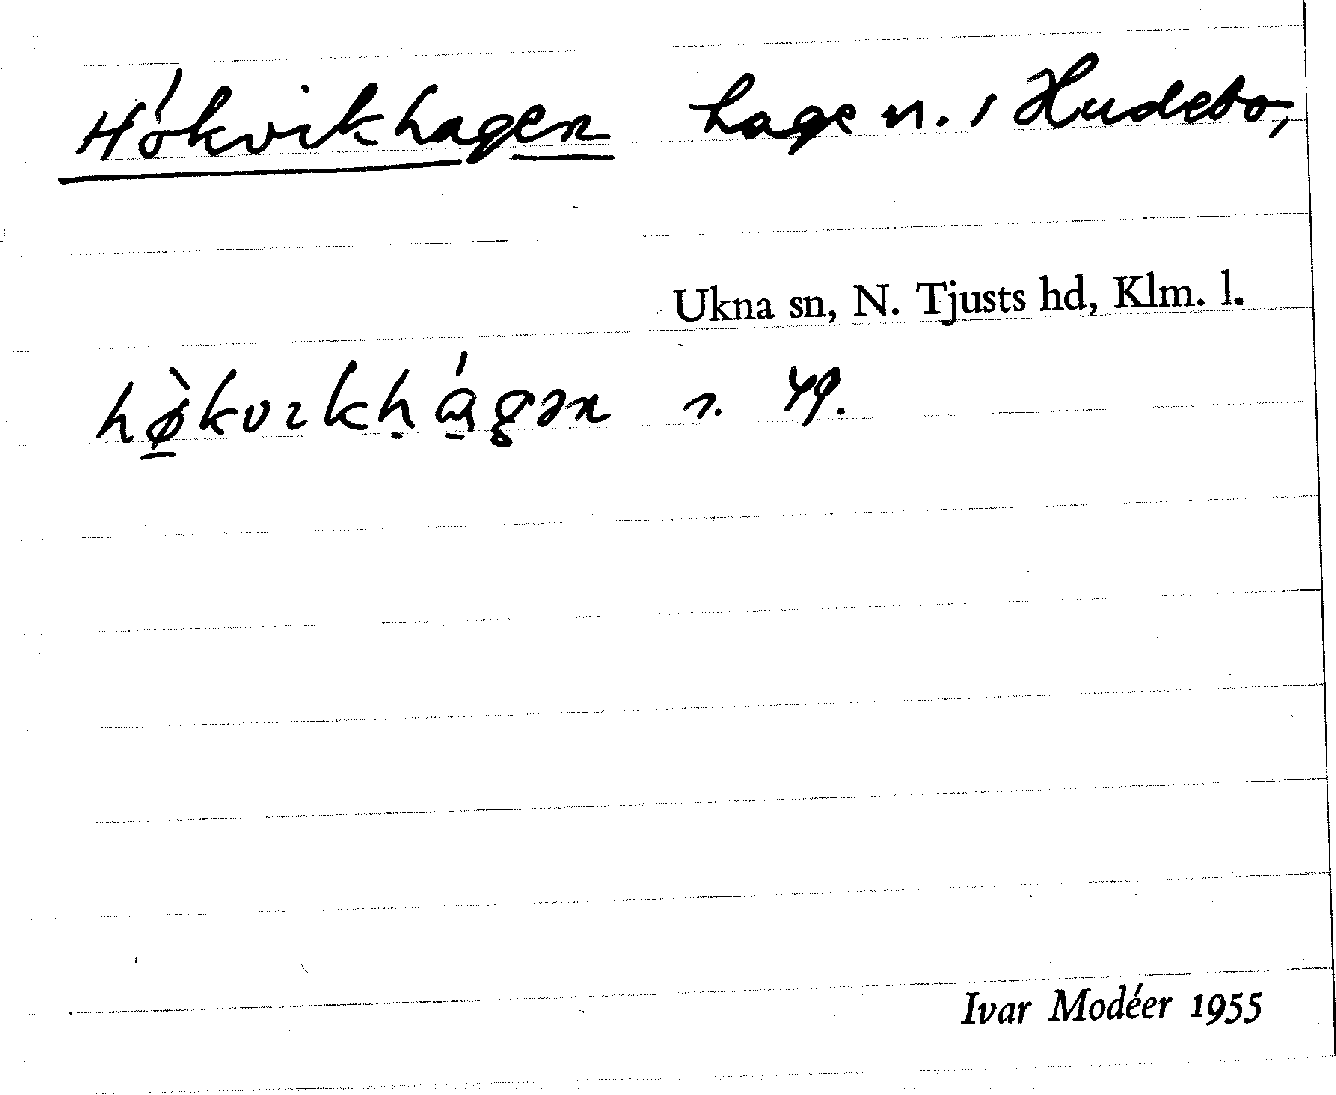 Hökvikhagen hage n. i Hudebo,
Ukna sn, N. Tjusts hd, Klm. l.
hø̀kvıkḥág̥ən
Ivar Modéer 1955